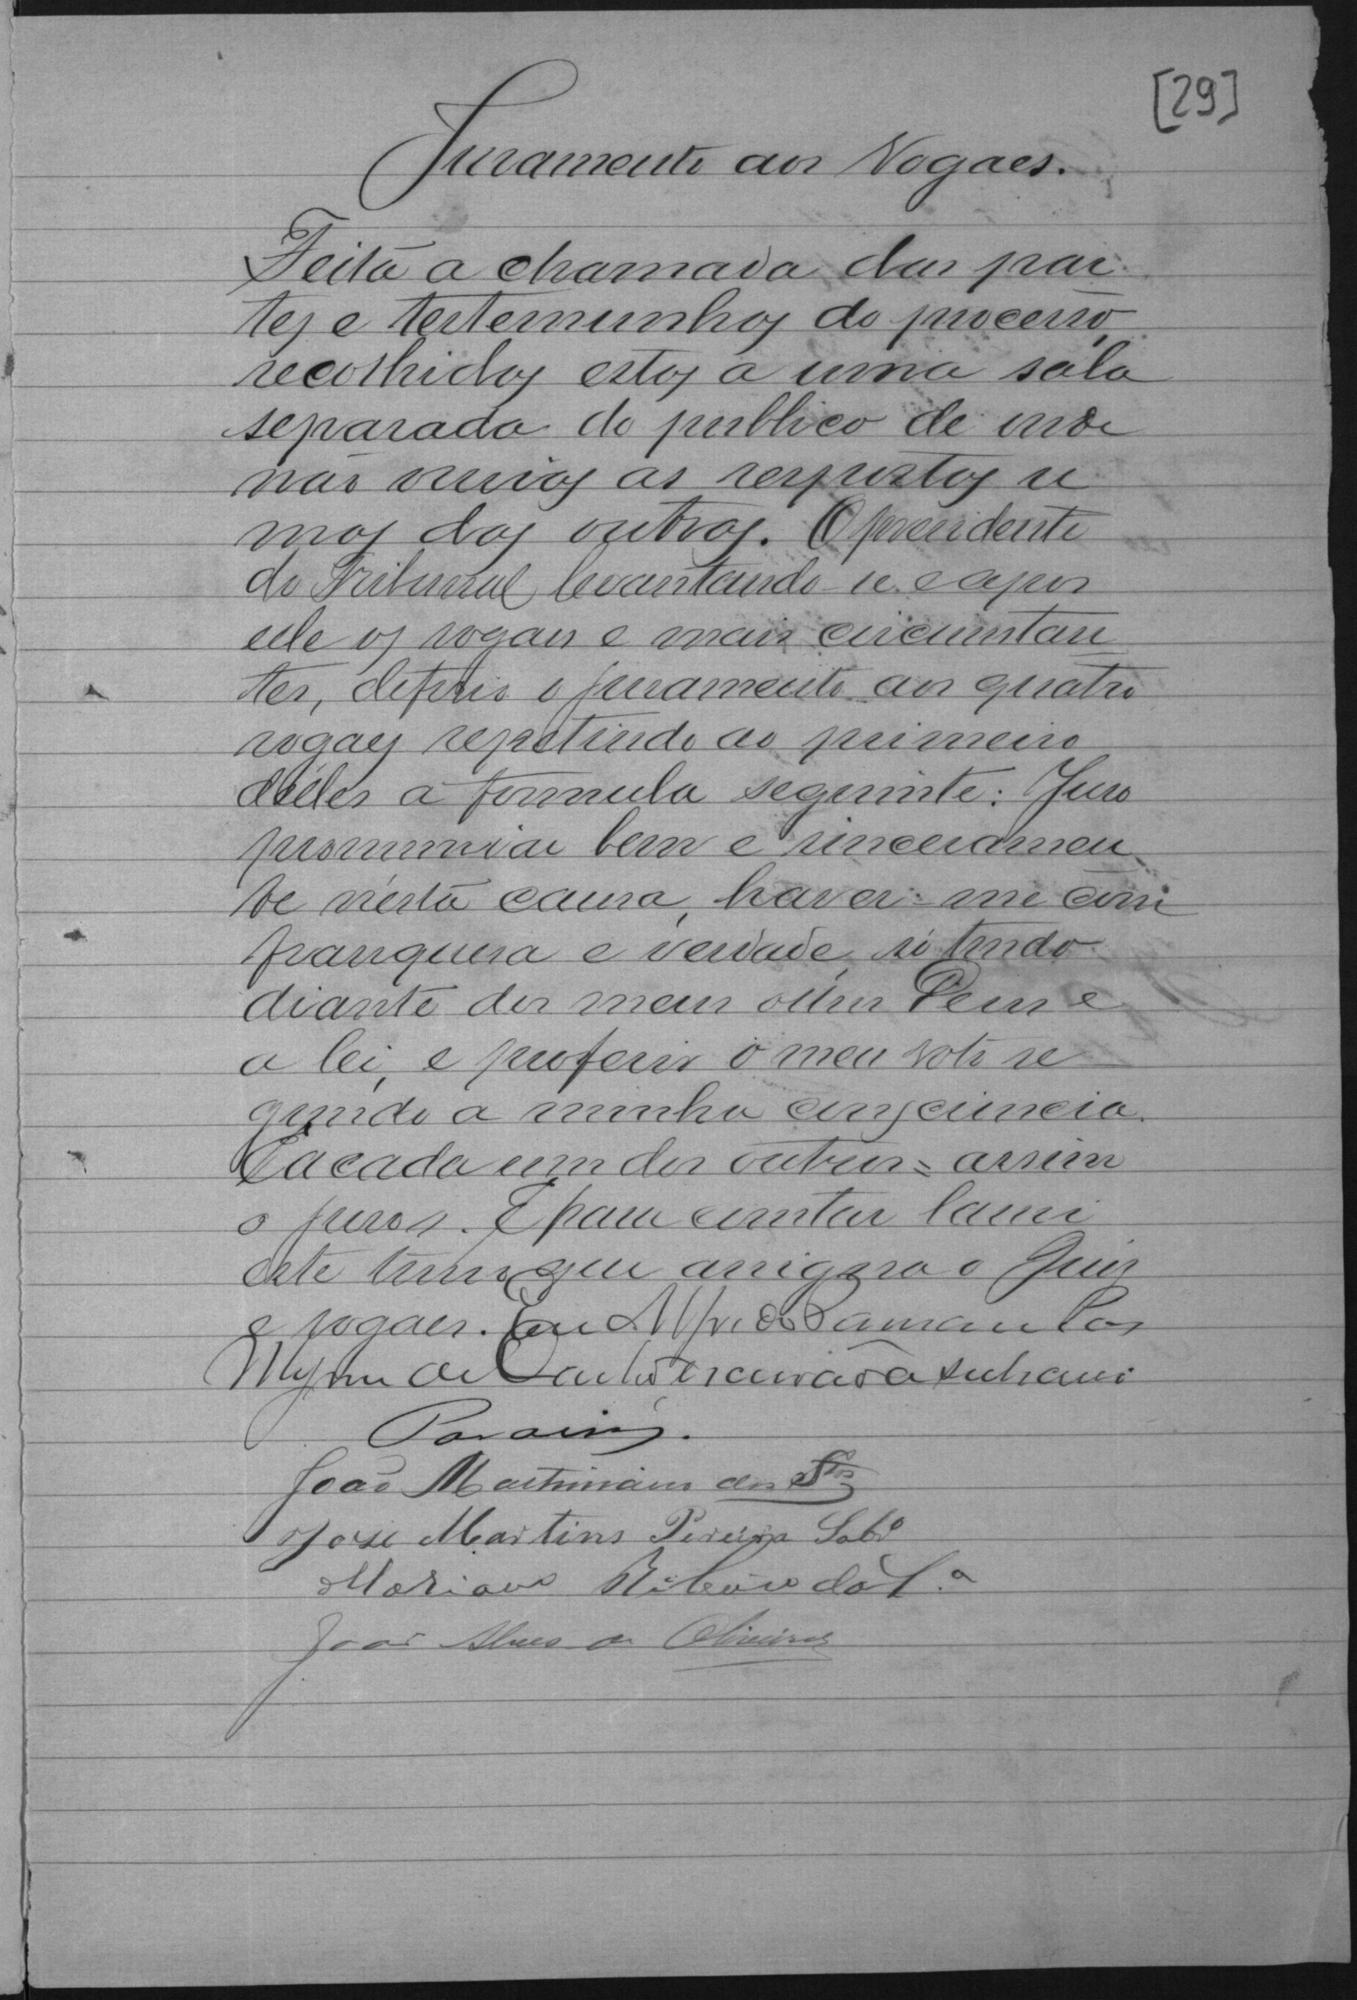 [29]
Juramento aos Vogaes.
Feita a chamada das par
tes e testemunhas do processo,
recolhidas estas a uma sala
separada do publico de onde
não ouvia as respostas u
mas das outras. O presidente
do Tribunal levantando-se e apos
elle os vogaes e mais circumstan
tes, deferio o juramento aos quatro
vogaes repetindo ao primeiro
delles a formula seguinte: Juro
pronunciar bem e sinceramen
te n'esta causa, haver-me com
franquesa e verdade, só tendo
diante dos meus olhos Deus e
a lei, e proferir o meu voto se
gundo a minha consciencia.
E a cada um dos outros = assim
o juro. E para constar lavrei
este termo que assigna o Juiz
e vogaes. Eu Alfredo
de escrivão
Paraiso.
João Martiniano dos Stos
José Martins Pereira Sobro
Mariano Ribeiro da Sa
João Alves de Oliveira